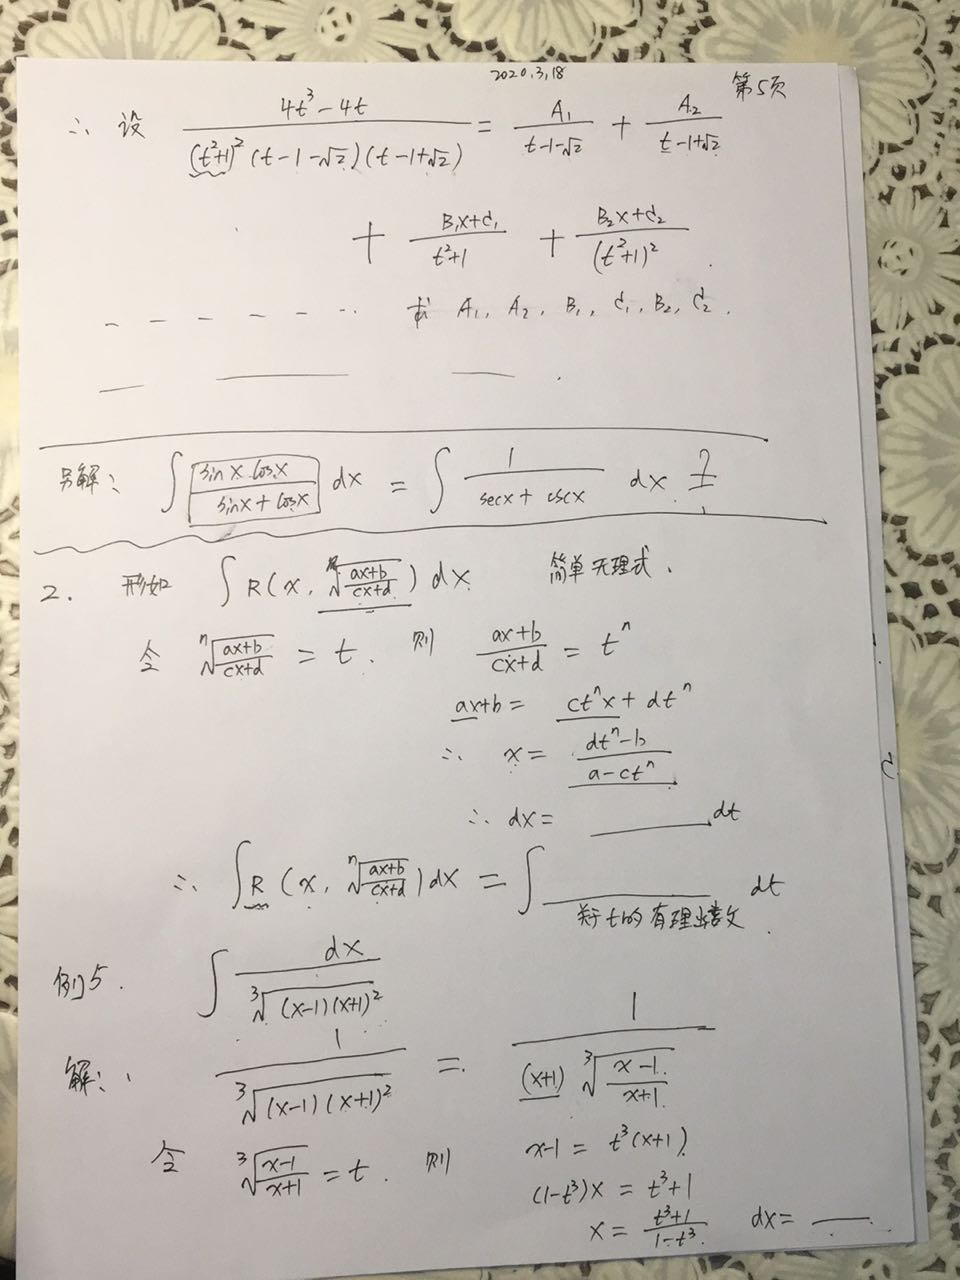 2020.3.18
第5页
∴ 设 (4t³-4t)/((t²+1)²(t-1-√2)(t-1+√2)) = A₁/(t-1-√2) + A₂/(t-1+√2)
+ (B₁x+C₁)/(t²+1) + (B₂x+C₂)/(t²+1)².
- - - - - - · 求 A₁, A₂, B₁, C₁, B₂, C₂.
另解: ∫ (sinx cosx)/(sinx+cosx) dx = ∫ 1/(secx+cscx) dx. ?
2. 形如 ∫R(x, ⁿ√((ax+b)/(cx+d)))dx 简单无理式.
令 ⁿ√((ax+b)/(cx+d)) = t. 则 (ax+b)/(cx+d) = tⁿ
ax+b = ctⁿx + dtⁿ
∴ x = (dtⁿ-b)/(a-ctⁿ)
∴ dx = ____ dt
∴ ∫R(x, ⁿ√((ax+b)/(cx+d)))dx = ∫ ____ dt
关于t的有理函数
例5. ∫ dx/³√((x-1)(x+1)²)
解: 1/³√((x-1)(x+1)²) = 1/((x+1) ³√((x-1)/(x+1)))
令 ³√((x-1)/(x+1)) = t. 则 x-1 = t³(x+1)
(1-t³)x = t³+1
x = (t³+1)/(1-t³). dx = ____